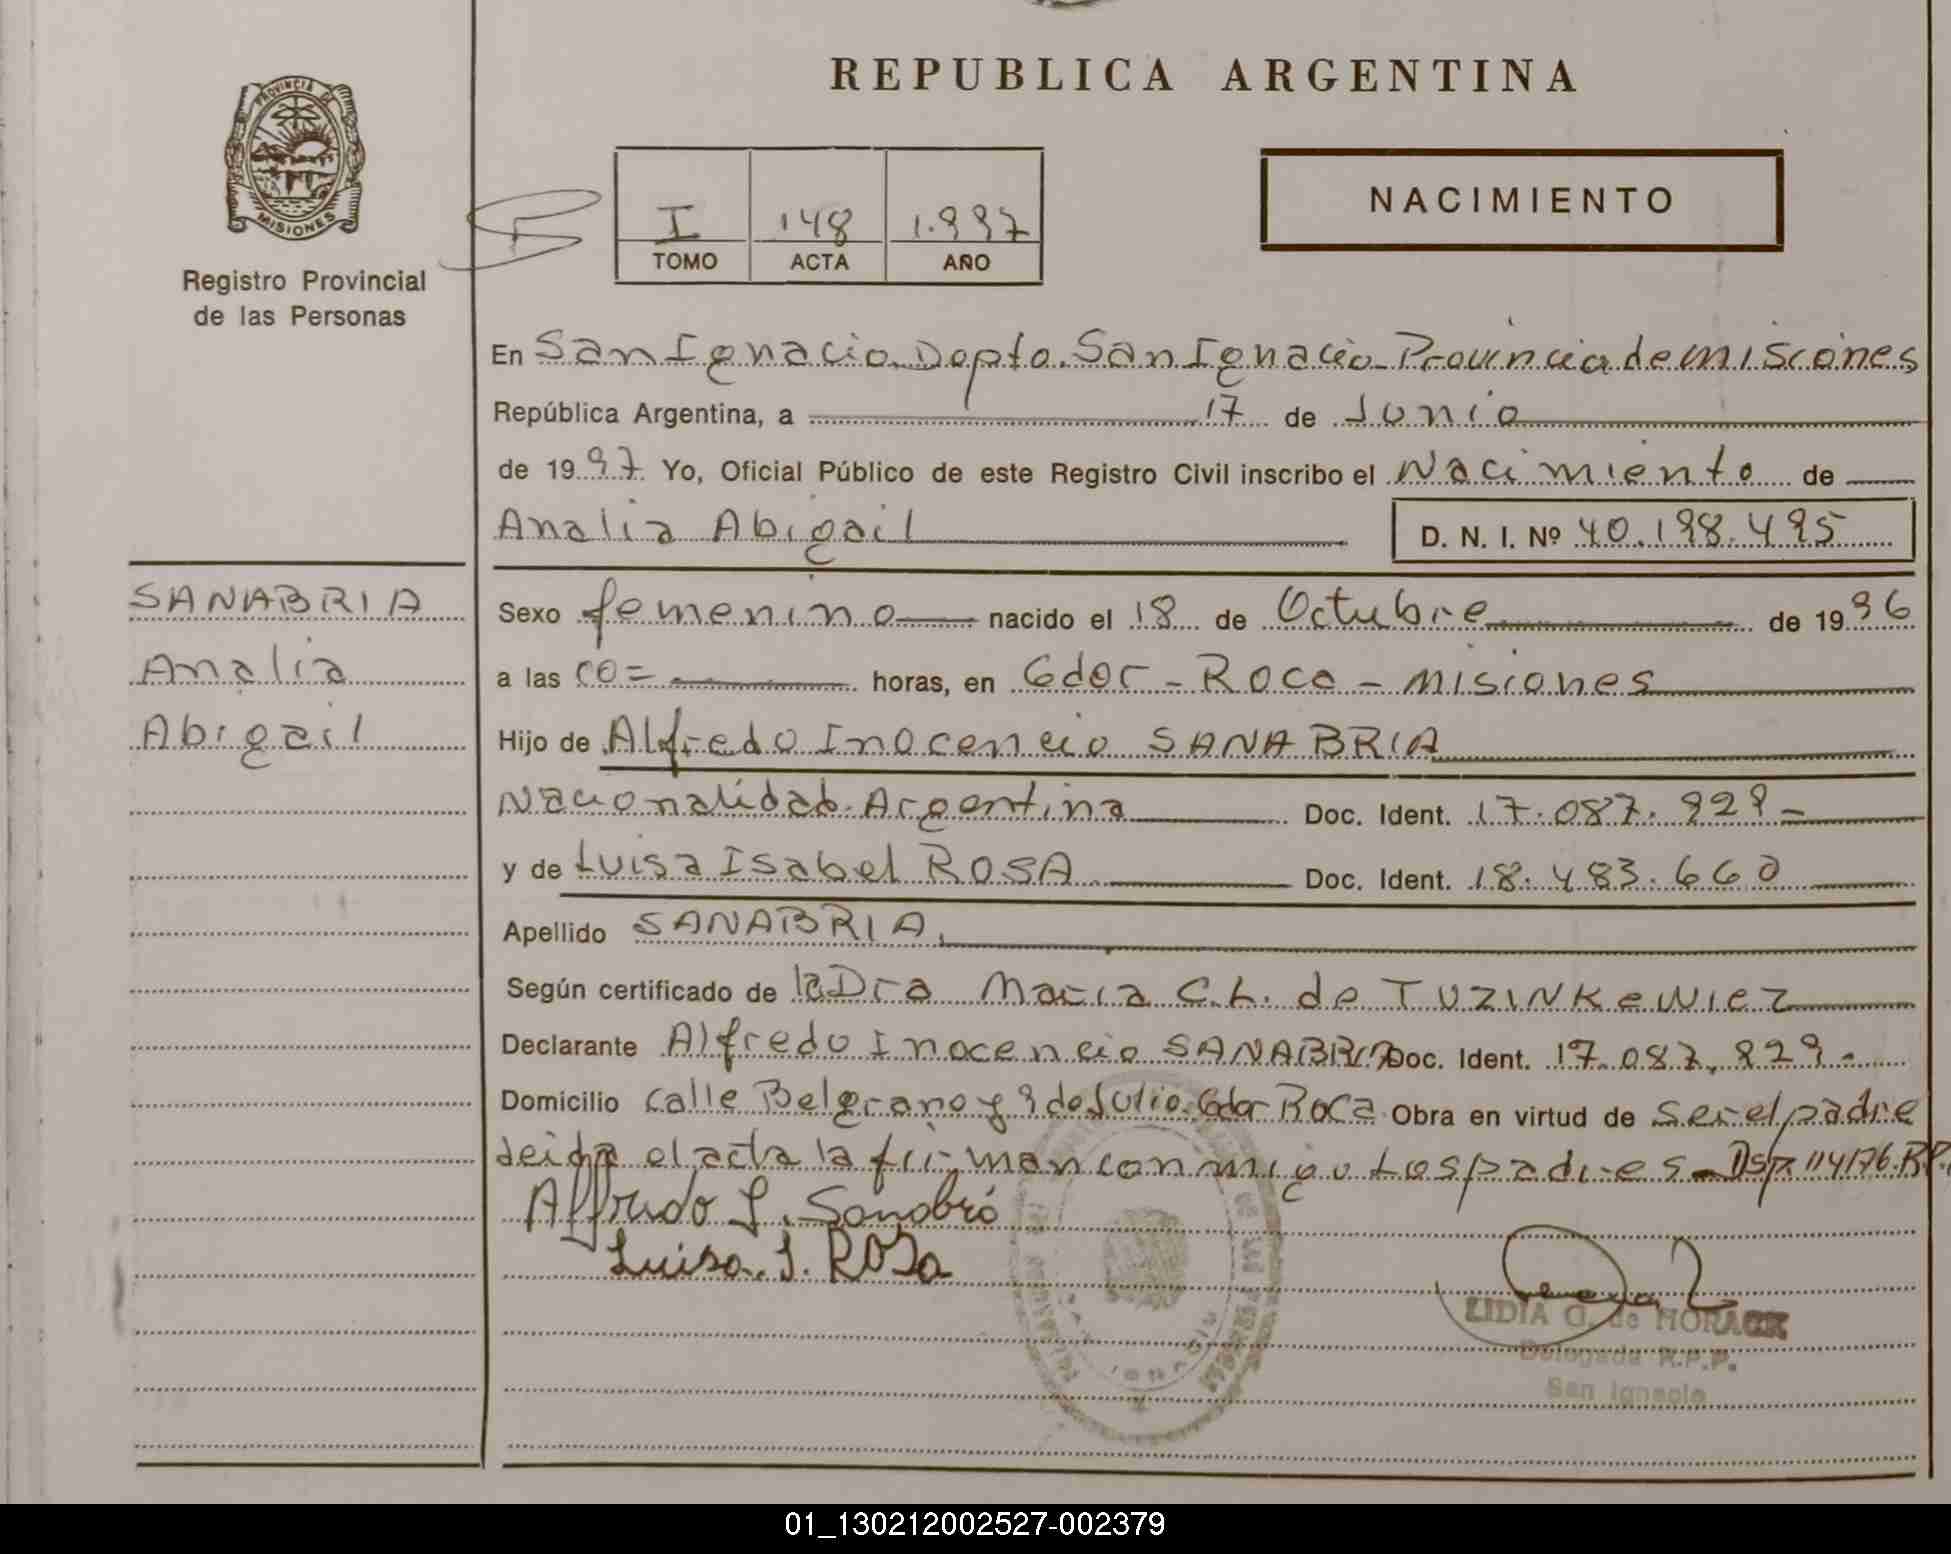 REPUBLICA ARGENTINA
PROVINCIA DE
MISIONES
Registro Provincial
de las Personas
I 148 1.997
TOMO ACTA AÑO
NACIMIENTO
En San Ignacio Depto. San Ignacio Provincia de misiones
República Argentina, a 17 de Junio
de 1997 Yo, Oficial Público de este Registro Civil inscribo el Nacimiento de
Analia Abigail D. N. I. Nº 40.198.495
SANABRIA
Analia
Abigail
Sexo femenino nacido el 18 de Octubre de 1996
a las co= horas, en Gdor - Roca - misiones
Hijo de Alfredo Inocencio SANABRIA
Nacionalidad Argentina Doc. Ident. 17.087.929-
y de Luisa Isabel ROSA Doc. Ident. 18.483.660
Apellido SANABRIA.
Según certificado de la Dra Maria C.L. de TUZINKewiez
Declarante Alfredo Inocencio SANABRIA Doc. Ident. 17.087.929-
Domicilio calle Belgrano y 9 de Julio. Gdor Roca Obra en virtud de ser el padre
leida el acta la firman conmigo los padres - Dsp. 114/76. R.P.
Alfredo I. Sanabria
Luisa. I. ROSa
LIDIA G. de HORACK
Delegada R.P.P.
San Ignacio
01_130212002527-002379